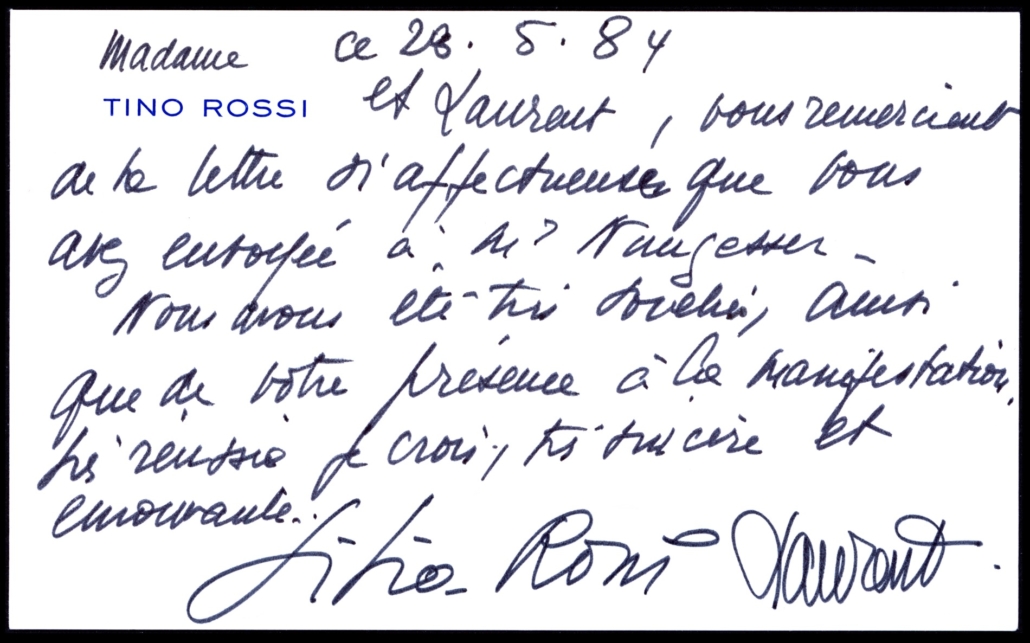 Madame ce 28. 5. 84
TINO ROSSI et Laurent, vous remercient
de la lettre si affectueuse que vous
avez envoyée à Mr Nungesser -
Nous avons été très touchés, ainsi
que de votre présence à la manifestation,
très réussie je crois, très sincère et
émouvante.
Lilia Rossi Laurent.